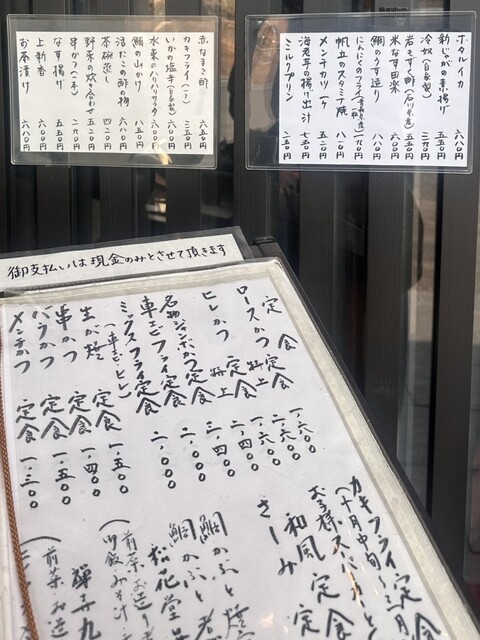 ホタルイカ 六八〇円
新じゃがの素揚げ 五五〇円
冷奴(自家製) 三九〇円
岩もずく酢(石川県産) 五五〇円
米なす田楽 六八〇円
鯛のうす造り 八八〇円
にんにくのフライ
メンチカツ 一ケ 五二〇円
帆立のスタミナ焼 八一〇円
海老芋の揚げ出汁 七五〇円
ミルクプリン 二五〇円
赤なまこ酢 六五〇円
カキフライ(一ケ)
いかの塩辛(自家製) 六〇〇円
水菜のハリハリサラダ 六八〇円
鯛の山かけ 八五〇円
活だこの酢の物 六八〇円
茶碗蒸し 四二〇円
野菜の炊き合わせ 五二〇円
串かつ(一本)
なす揚げ 五五〇円
上新香 六八〇円
お茶漬け 六八〇円
御支払いは現金のみとさせて頂きます
定食
ロースかつ 定食 一、六〇〇
特上 二、六〇〇
ヒレかつ 定食 二、四〇〇
特上 三、四〇〇
名物ジャンボかつ定食 二、〇〇〇
車えびフライ定食
ミックスフライ定食 二、〇〇〇
(車えび・ヒレ)
生が焼 定食 一、五〇〇
串かつ 定食 一、四〇〇
バラかつ 定食 一、五〇〇
メンチかつ 定食 一、三〇〇
カキフライ定食
(十月中旬〜三月
お子様
和風 定
さしみ 定
鯛かぶと
松花堂